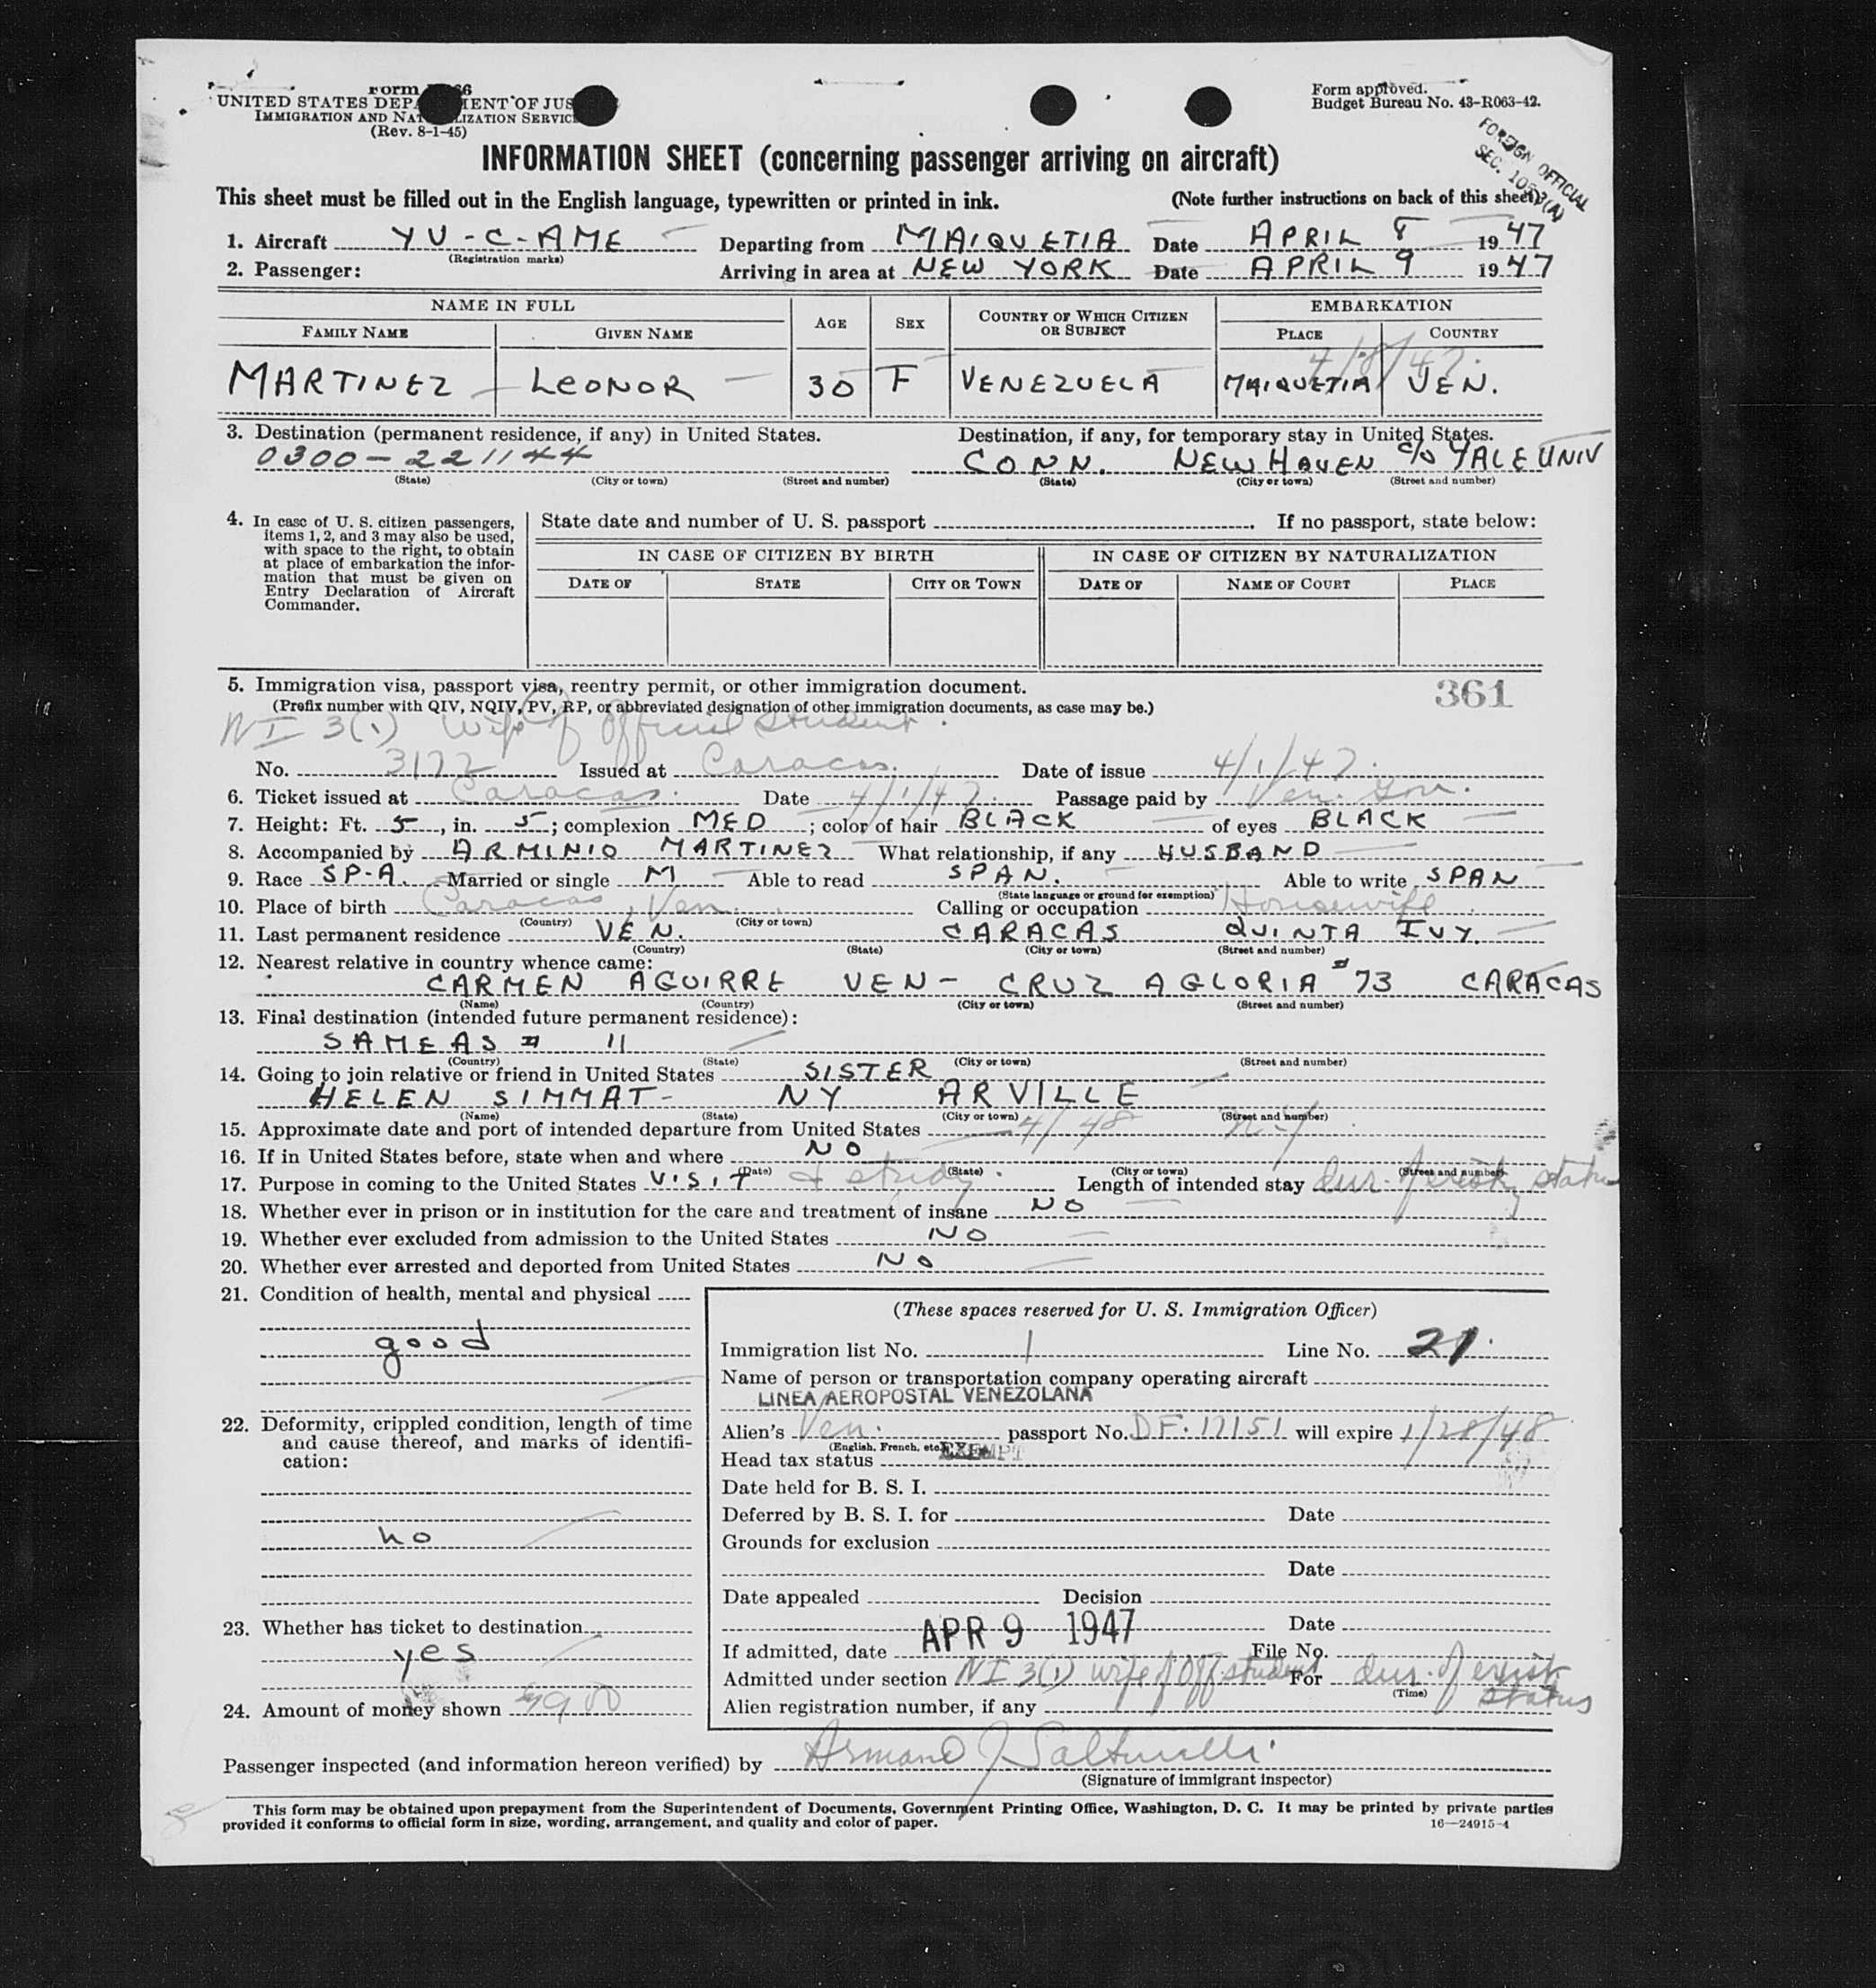 Form 66
UNITED STATES DEPARTMENT OF JUS
IMMIGRATION AND NATURALIZATION SERVICE
(Rev. 8-1-45)
Form approved.
Budget Bureau No. 43-R063-42.
FOREIGN OFFICIAL
SEC.
INFORMATION SHEET (concerning passenger arriving on aircraft)
This sheet must be filled out in the English language, typewritten or printed in ink. (Note further instructions on back of this sheet)
1. Aircraft YV-C-AME Departing from MAIQUETIA Date APRIL 8 1947
(Registration marks)
2. Passenger: Arriving in area at NEW YORK Date APRIL 9 1947
NAME IN FULL EMBARKATION
FAMILY NAME GIVEN NAME AGE SEX COUNTRY OF WHICH CITIZEN OR SUBJECT PLACE COUNTRY
4/8/47.
MARTINEZ LEONOR 30 F VENEZUELA MAIQUETIA VEN.
3. Destination (permanent residence, if any) in United States. Destination, if any, for temporary stay in United States.
0300-221144 CONN. NEW HAVEN c/o YALE UNIV
(State) (City or town) (Street and number) (State) (City or town) (Street and number)
4. In case of U. S. citizen passengers, items 1, 2, and 3 may also be used, with space to the right, to obtain at place of embarkation the information that must be given on Entry Declaration of Aircraft Commander.
State date and number of U. S. passport If no passport, state below:
IN CASE OF CITIZEN BY BIRTH IN CASE OF CITIZEN BY NATURALIZATION
DATE OF STATE CITY OR TOWN DATE OF NAME OF COURT PLACE
5. Immigration visa, passport visa, reentry permit, or other immigration document. 361
(Prefix number with QIV, NQIV, PV, RP, or abbreviated designation of other immigration documents, as case may be.)
NI 3(1) wife of official student.
No. 3172 Issued at Caracas. Date of issue 4/1/47.
6. Ticket issued at Caracas. Date 4/1/47. Passage paid by Ven. Gov.
7. Height: Ft. 5, in. 5; complexion MED; color of hair BLACK of eyes BLACK
8. Accompanied by ARMINIO MARTINEZ What relationship, if any HUSBAND
9. Race SP-A. Married or single M Able to read SPAN. Able to write SPAN
(State language or ground for exemption)
10. Place of birth Caracas, Ven. Calling or occupation Housewife
(Country) (City or town)
11. Last permanent residence VEN. CARACAS QUINTA IVY.
(Country) (State) (City or town) (Street and number)
12. Nearest relative in country whence came:
CARMEN AGUIRRE VEN- CRUZ A GLORIA #73 CARACAS
(Name) (Country) (City or town) (Street and number)
13. Final destination (intended future permanent residence):
SAME AS # 11
(Country) (State) (City or town) (Street and number)
14. Going to join relative or friend in United States SISTER
HELEN SIMMAT- NY ARVILLE
(Name) (State) (City or town) (Street and number)
15. Approximate date and port of intended departure from United States 4/48 N-Y
16. If in United States before, state when and where NO
(Date) (State) (City or town) (Street and number)
17. Purpose in coming to the United States VISIT & study. Length of intended stay dur. of exist. status
18. Whether ever in prison or in institution for the care and treatment of insane NO
19. Whether ever excluded from admission to the United States NO
20. Whether ever arrested and deported from United States NO
21. Condition of health, mental and physical
good
22. Deformity, crippled condition, length of time and cause thereof, and marks of identification:
no
23. Whether has ticket to destination
yes
24. Amount of money shown
(These spaces reserved for U. S. Immigration Officer)
Immigration list No. 1 Line No. 21.
Name of person or transportation company operating aircraft
LINEA AEROPOSTAL VENEZOLANA
Alien's Ven. passport No. DF. 17151 will expire 1/28/48
(English, French, etc.)
Head tax status EXEMPT
Date held for B. S. I.
Deferred by B. S. I. for Date
Grounds for exclusion
Date
Date appealed Decision
Date
If admitted, date APR 9 1947 File No.
Admitted under section NI 3(1) wife of Off. student For dur. of exist. status
(Time)
Alien registration number, if any
Passenger inspected (and information hereon verified) by Armand J
(Signature of immigrant inspector)
This form may be obtained upon prepayment from the Superintendent of Documents, Government Printing Office, Washington, D. C. It may be printed by private parties
provided it conforms to official form in size, wording, arrangement, and quality and color of paper. 16—24915-4